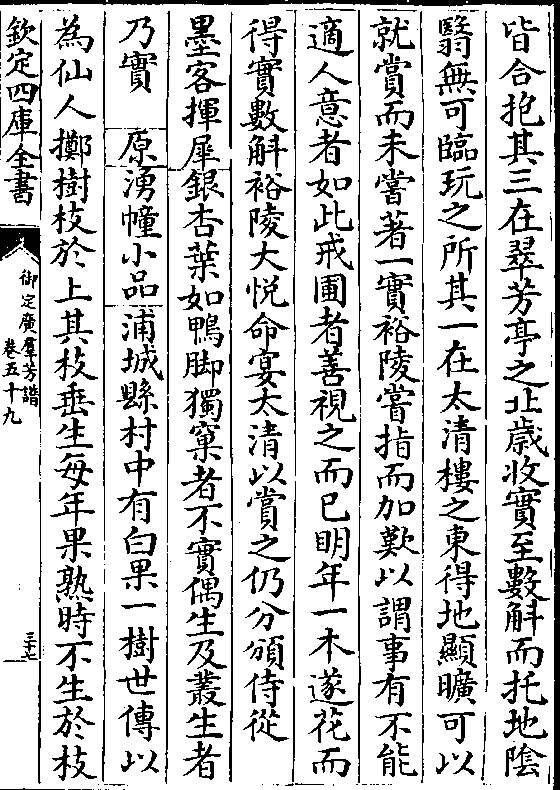 皆合抱其三在翠芳亭之北歳收實至數斛而托地陰
翳無可臨玩之所其一在太清樓之東得地顯曠可以
就賞而未嘗著一實裕陵嘗指而加歎以謂事有不能
適人意者如此戒圃者善視之而已明年一木遂花而
得實數斛裕陵大悦命宴太清以賞之仍分頒侍從
墨客揮犀銀杏葉如鴨脚獨窠者不實偶生及叢生者
乃實 原湧幢小品浦城縣村中有白果一樹世傳以
為仙人擲樹枝於上其枝垂生每年果熟時不生於枝
欽定四庫全書
御定廣羣芳譜
卷五十九
三十七